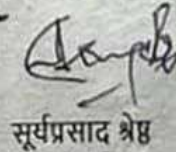 सूर्यप्रसाद श्रेष्ठ